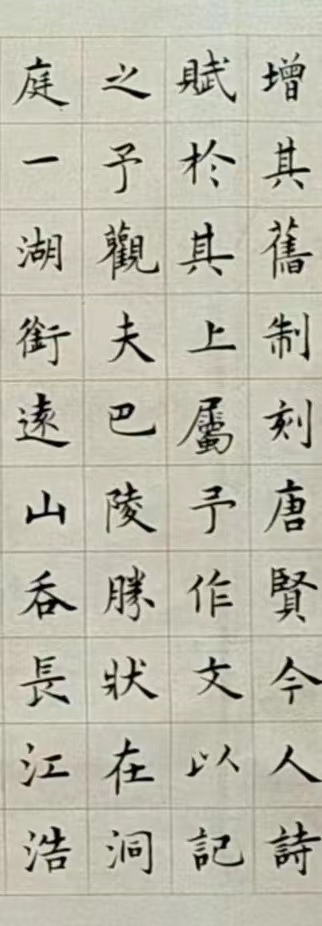 增其舊制刻唐賢今人詩
賦於其上屬予作文以記
之予觀夫巴陵勝狀在洞
庭一湖銜遠山吞長江浩